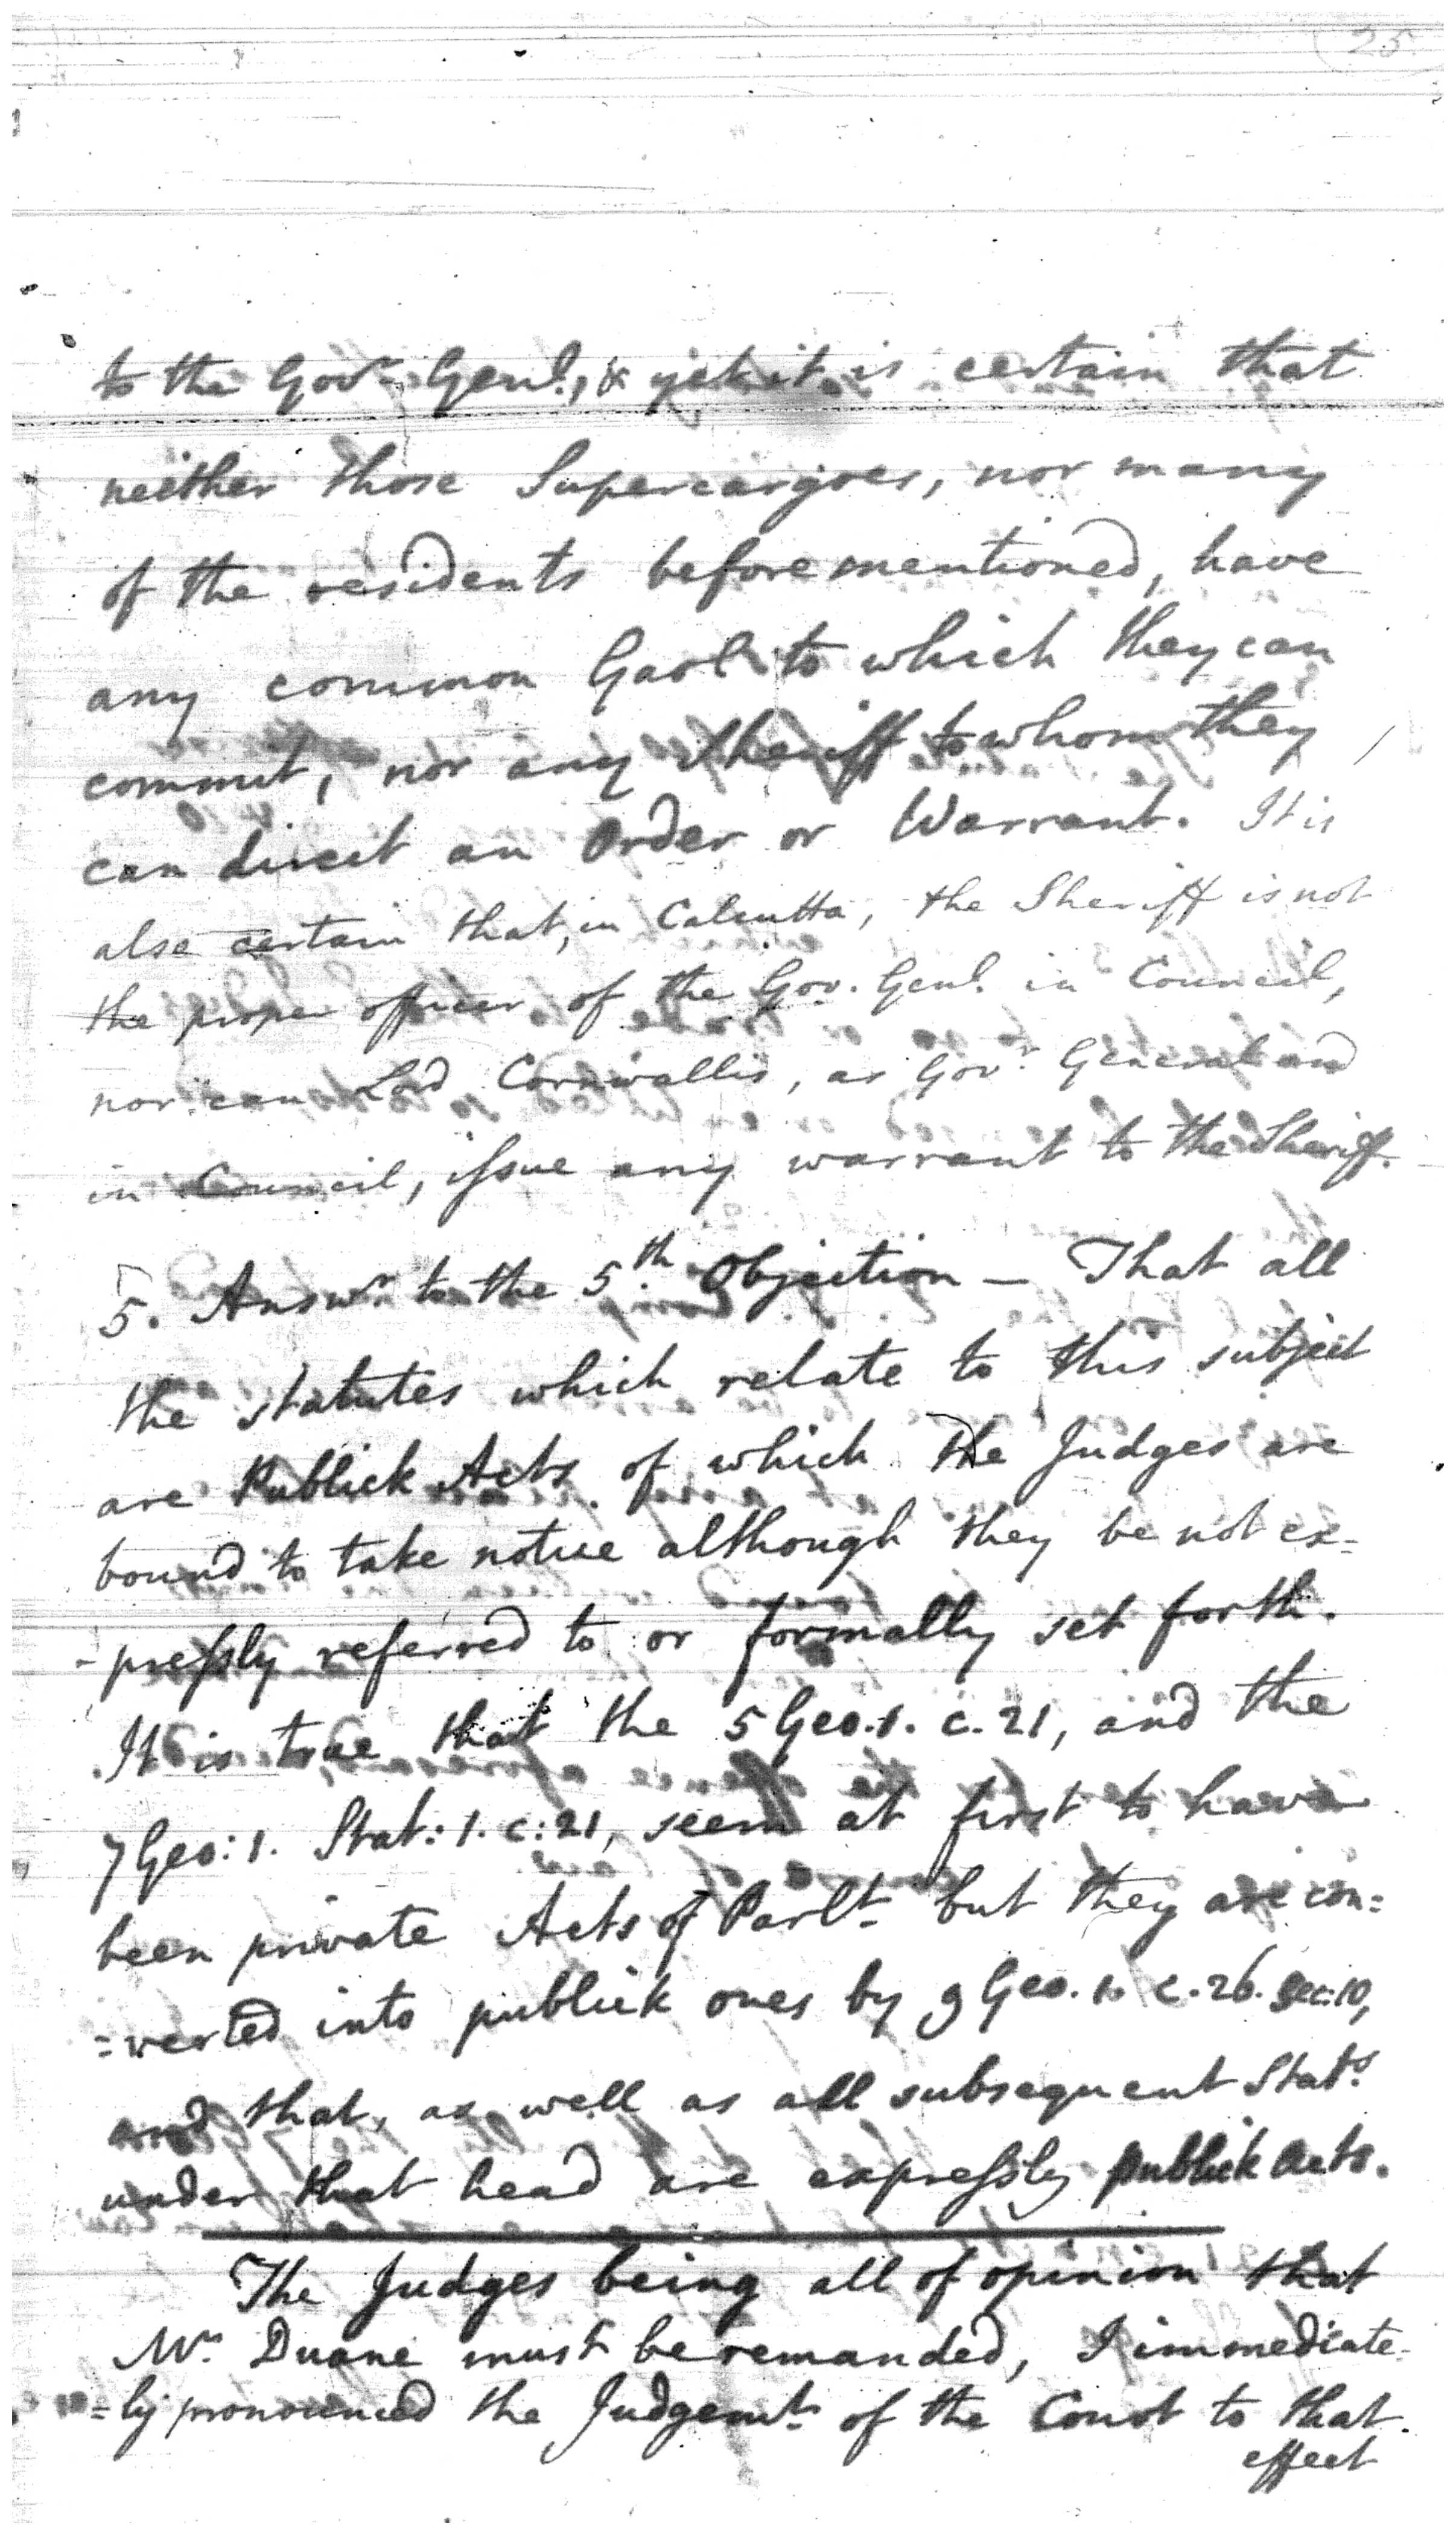 25
to the Govr. Genl., & yet it is certain that
neither those Supercargoes, nor many
of the residents before mentioned, have
any common Gaol to which they can
commit, nor any Sheriff to whom they
can direct an Order or Warrant. It is
also certain that, in Calcutta, the Sheriff is not
the proper officer of the Gov. Genl. in Council,
nor can Lord Cornwallis, as Govr. General and
in Council, issue any warrant to the Sheriff.
5. Answr. to the 5th. Objection — That all
the statutes which relate to this subject
are Publick Acts of which the Judges are
bound to take notice although they be not ex=
-pressly referred to or formally set forth.
It is true that the 5 Geo. 1. c. 21, and the
7 Geo: 1. Stat: 1. c: 21, seem at first to have
been private Acts of Parlt. but they are con=
=verted into publick ones by 9 Geo. 1. c. 26. Sec: 10,
and that, as well as all subsequent Stats.
under that head are expressly publick Acts.
The Judges being all of opinion that
Mr. Duane must be remanded, I immediate-
=ly pronounced the Judgemt. of the Court to that
effect